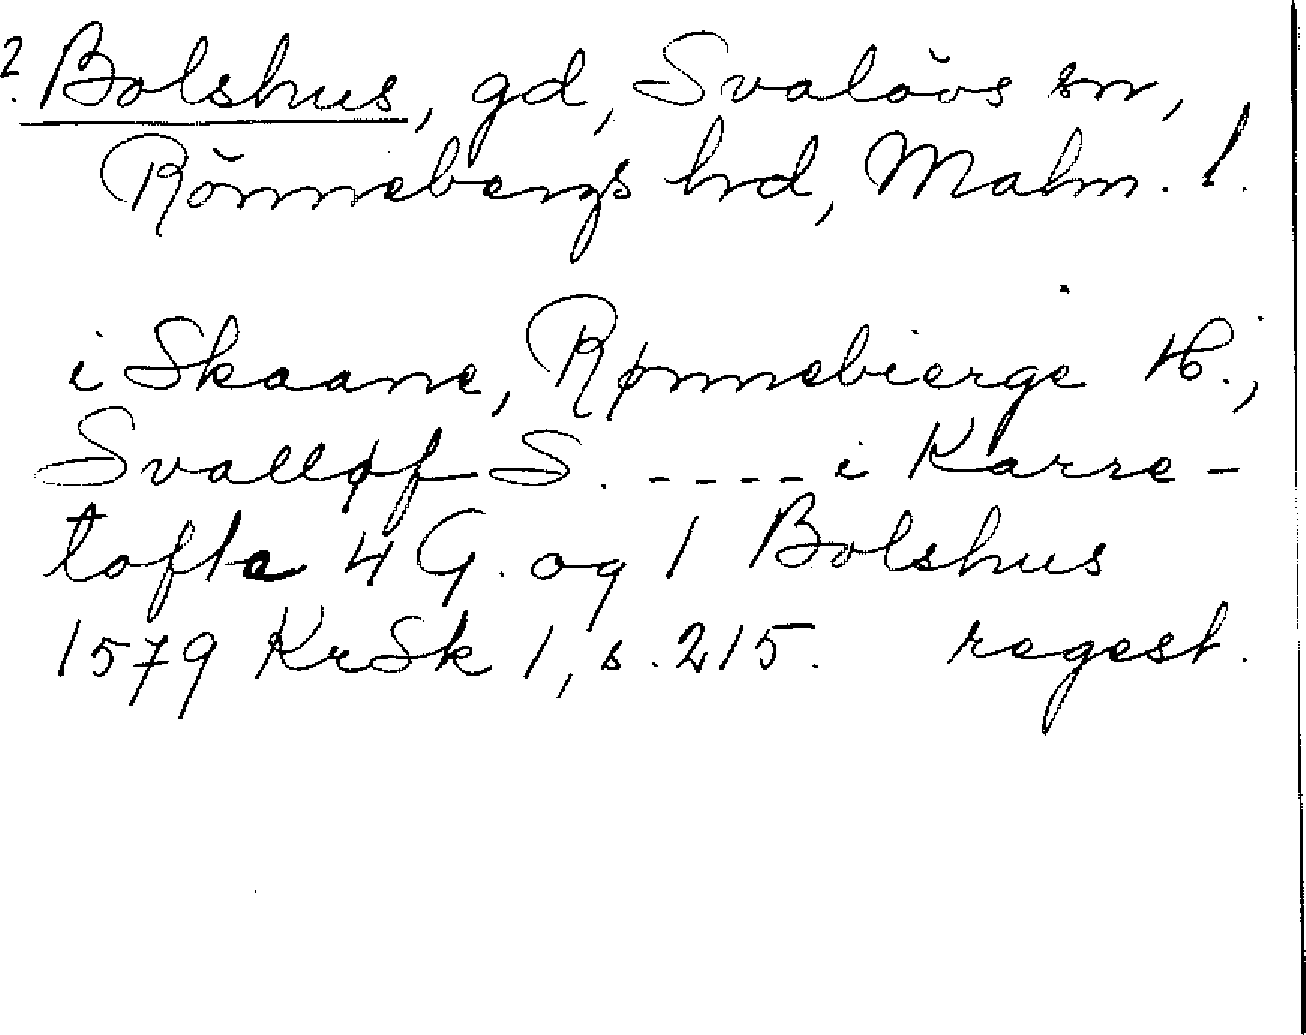 ? Bolshus, gd, Svalövs sn,
Rönnebergs hrd, Malm. l.
i Skaane, Rønnebierge H.,
Svalløf S. - - - - - i Karre-
tofte 4 G. og 1 Bolshus
1579 KrSk 1, s. 215. regest.